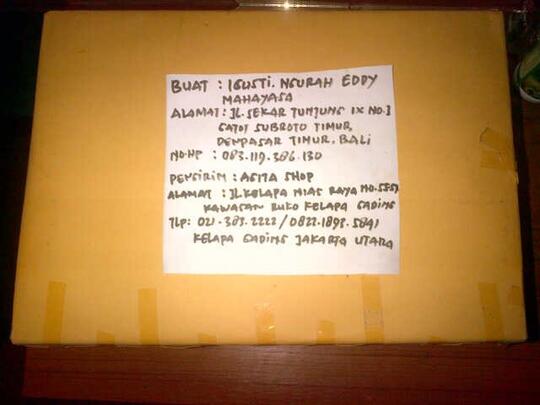 BUAT : IGUSTI. NGURAH EDDY
MAHAYASA
ALAMAT : JL. SEKAR TUNJUNG IX NO.3
GATOT SUBROTO TIMUR,
DENPASAR TIMUR, BALI
NO.HP : 083.119.386.130
PENGIRIM : AGITA SHOP
ALAMAT : JL KELAPA HIAS RAYA
KAWASAN RUKO KELAPA GADING
TLP: 021.383.2222 / 0822.1898.5841
KELAPA GADING JAKARTA UTARA